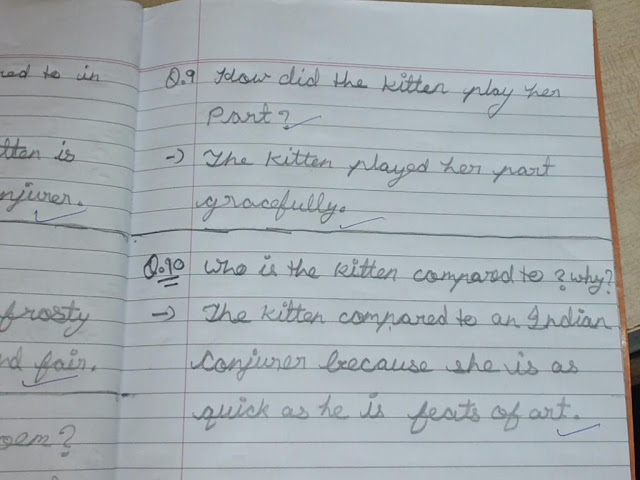 red to in
tten is
njurer.
frosty
nd fair.
oem?
Q.9 How did the kitten play her
Part?
→ The kitten played her part
gracefully.
Q.10 Who is the kitten compared to ? why?
→ The kitten compared to an Indian
Conjurer because she is as
quick as he is feats of art.